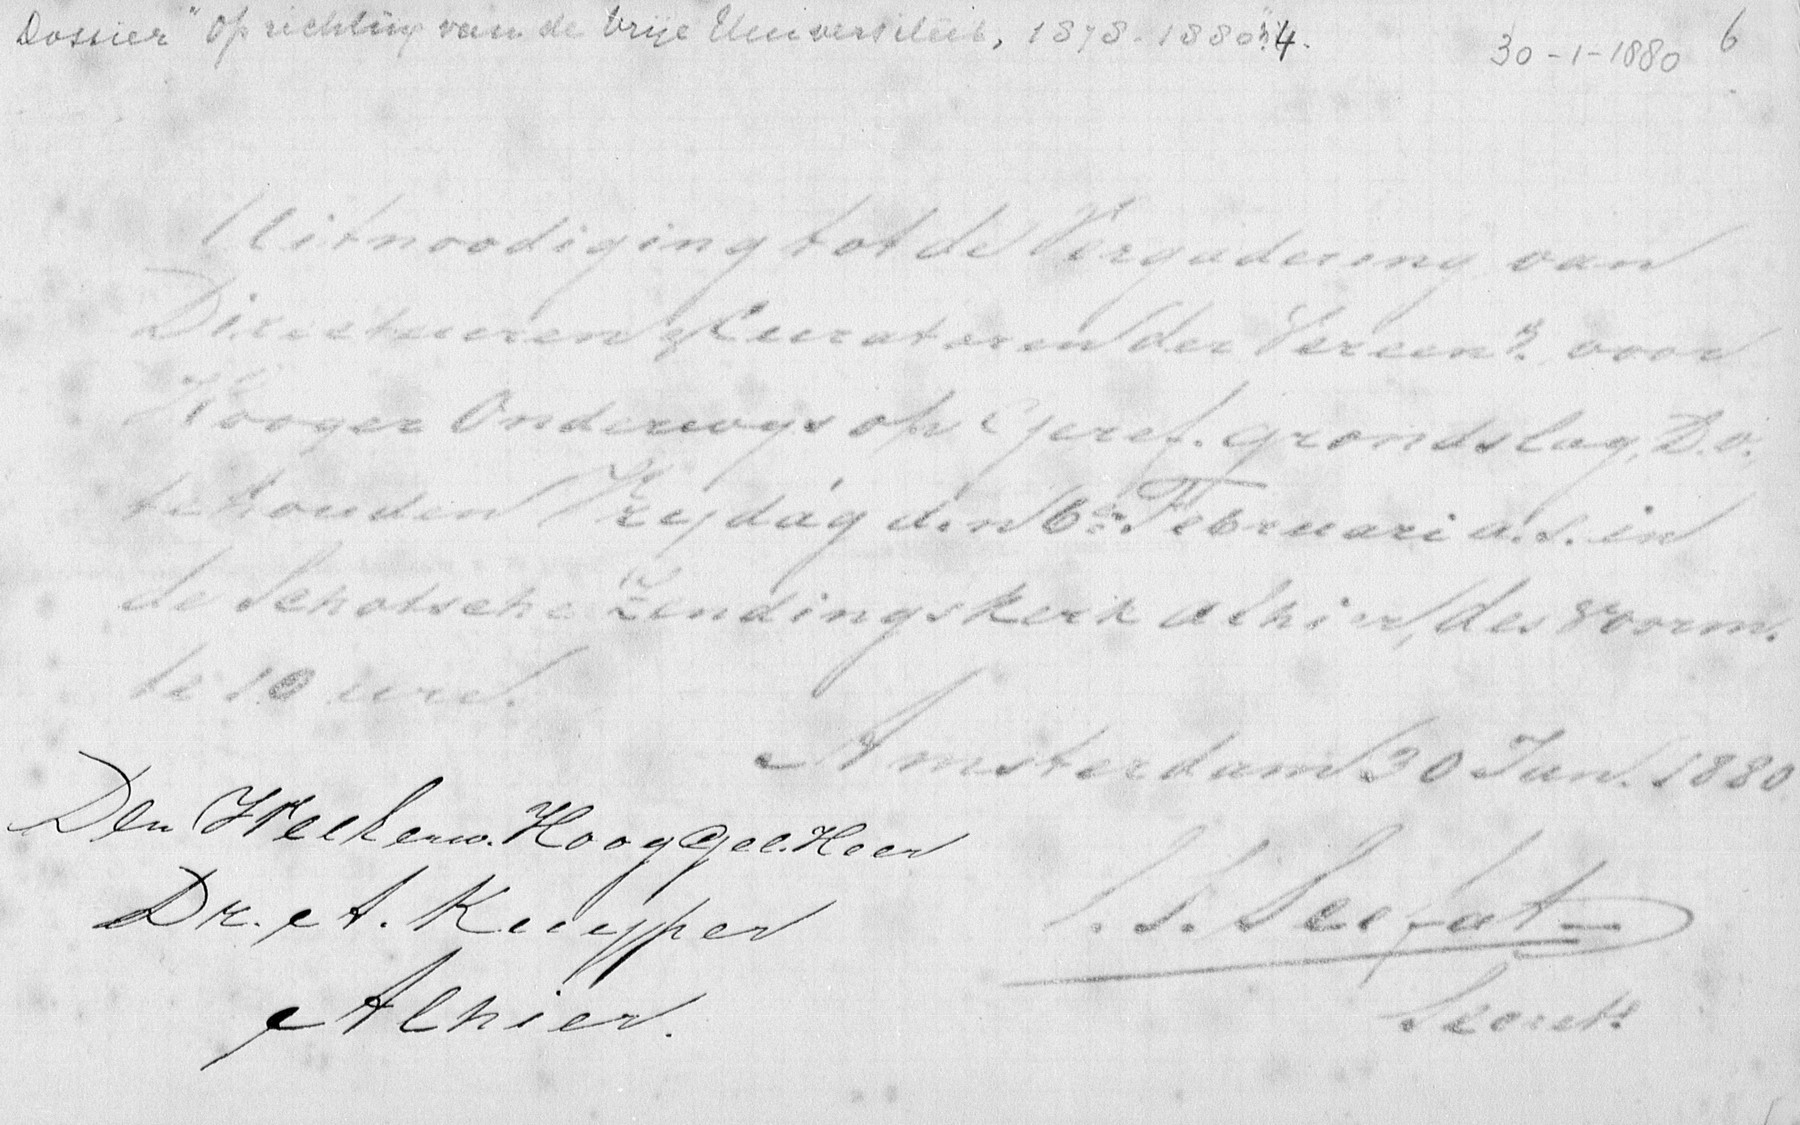 Dossier "Oprichting van de Vrije Universiteit, 1878-1880" 4.
30-1-1880 6
Uitnoodiging tot de Vergadering van
Directeuren & Curatoren der Vereen. voor
Hooger Onderwys op Geref. grondslag, D.v.
te houden Vrydag den 6en Februari a.s. in
de Schotsche Zendingskerk alhier, des voorm.
te 10 ure.
Amsterdam 30 Jan. 1880
Den WelEerw. HoogGel. Heer
Dr. A. Kuyper
Alhier.
Secrets.